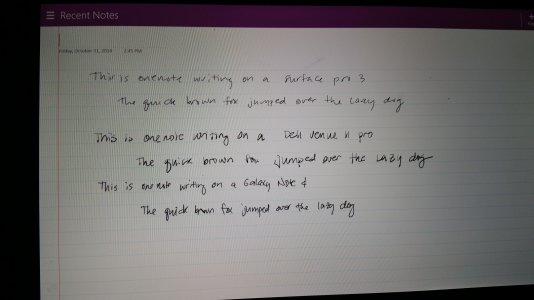 Recent Notes
Friday, October 31, 2014 2:45 PM
This is onenote writing on a surface pro 3
The quick brown fox jumped over the lazy dog
This is onenote writing on a Dell venue 11 pro
The quick brown fox jumped over the LAZY dog
This is onenote writing on a Galaxy Note 4
The quick brown fox jumped over the lazy dog